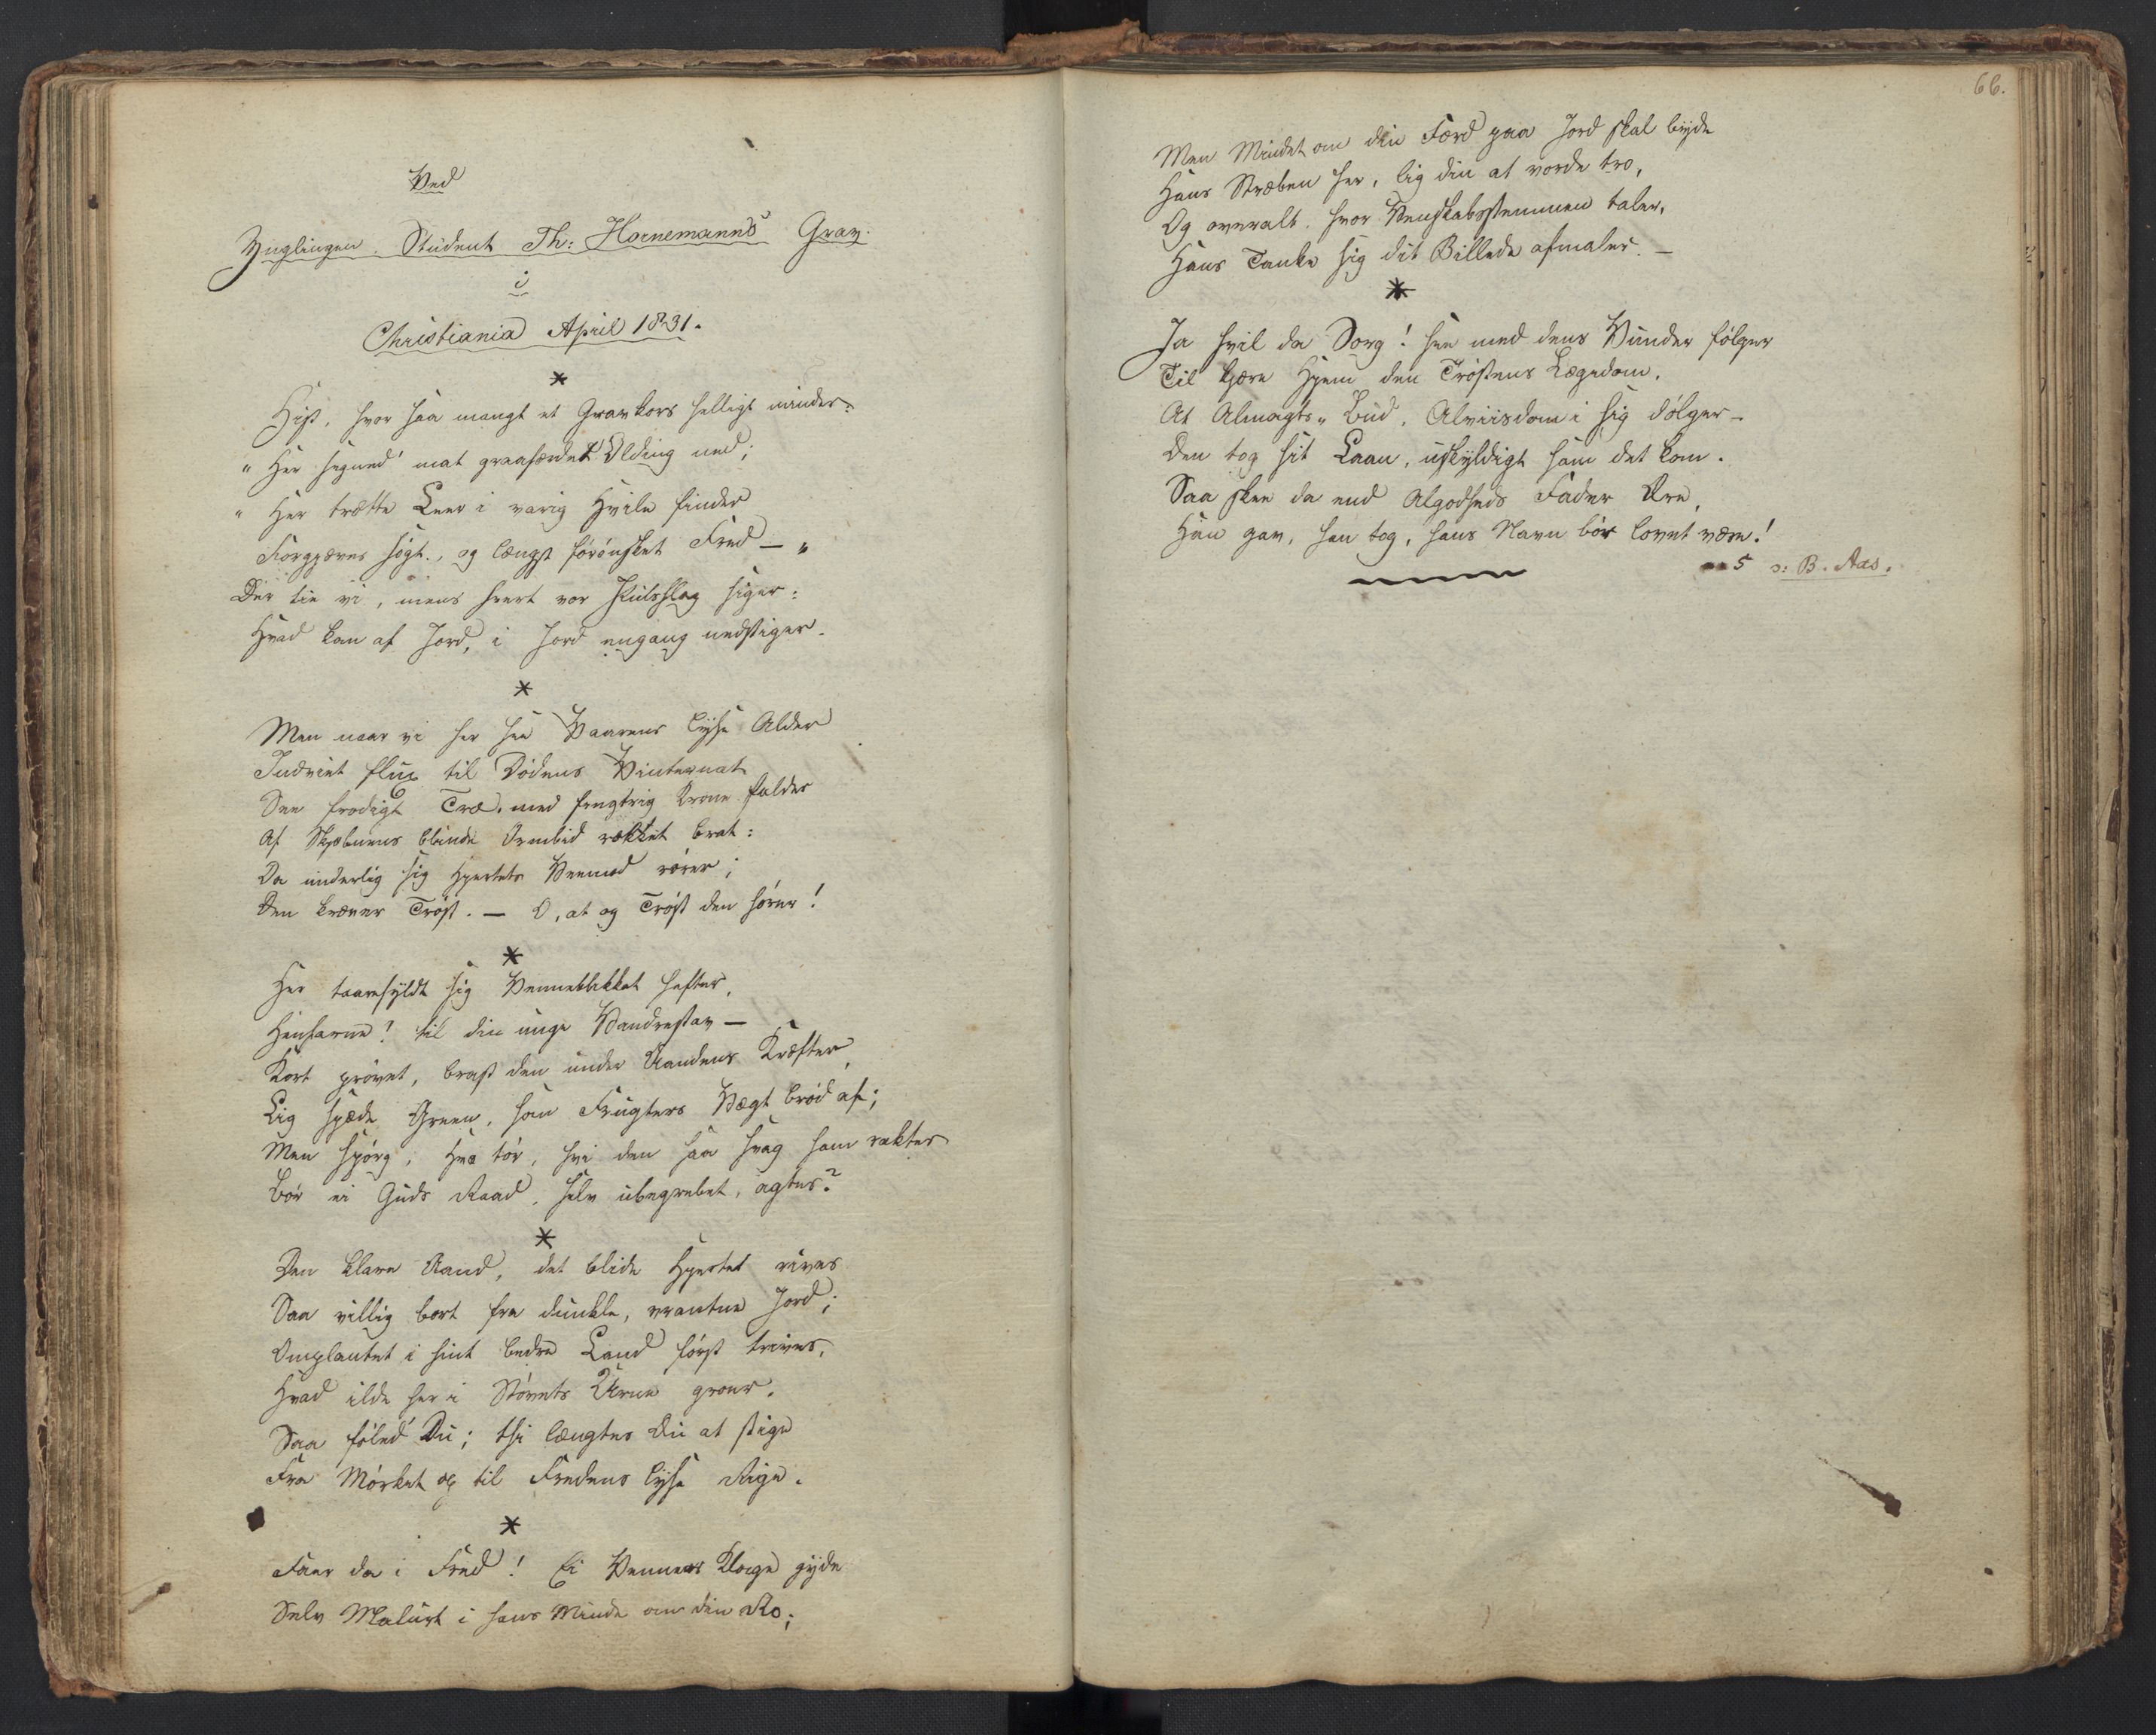 Ved
Ynglingen, Student Th: Hornemanns Grav.
i
Christiania April 1831.
*
Hist, hvor saa mangt et Gravkors helligt minder:
"Her segned' mat graahærdet Olding ned;
"Her trætte Leer i varig Hvile finder
Forgjæves søgt, og længst forønsket Fred — "
Der tie vi, mens hvert vor Pulsslag siger:
Hvad kom af Jord, i Jord engang nedstiger.
*
Men naar vi her see Vaarens lyse Alder
Indviet flux til Dødens Vinternat
See frodigt Træ, med frugtrig Krone falder
Af Skjæbnens blinde Ormbid rækket brat:
Da inderlig sig Hjertets Veemod rører;
Den kræver Trøst. — O, at og Trøst den hører!
*
Her taarefyldt sig Venneblikket hefter,
Henfarne! til din unge Vandrestav —
Kort prøvet, brast den under Aandens Kræfter,
Lig spæde Green, som Frugters Vægt brød af;
Men spørg, Hvo tør, hvi den saa svag ham raktes
Bør ei Guds Raad, selv ubegrebet, agtes?
*
Den klare Aand, det blide Hjertet rives
Saa villig bort fra dunkle, vrantne Jord;
Omplantet i hiint bedre Land først trives,
Hvad ilde her i Støvets Urne groer.
Saa føled' Du; thi længtes Du at stige
Fra Mørket op til Fredens lyse Rige.
*
Faer da i Fred! Ei Venners Klage gyde
Selv Malurt i hans Minde om din Ro;
66.
Men Mindet om din Færd paa Jord skal byde
Hans Stræben her, lig din at vorde tro,
Og overalt, hvor Venskabsstemmen taler,
Hans Tanke sig dit Billede afmaler. —
*
Ja hvil da Sorg! hen med dens Vunder følger
Til kjære Hjem den Trøstens Lægedom,
At Almagts-Bud, Alviisdom i sig dølger —
Den tog sit Laan, uskyldigt som det kom.
Saa skee da end Algodheds Fader Ære,
Han gav, han tog, hans Navn bør lovet være!
5 ɔ: B. Aas.